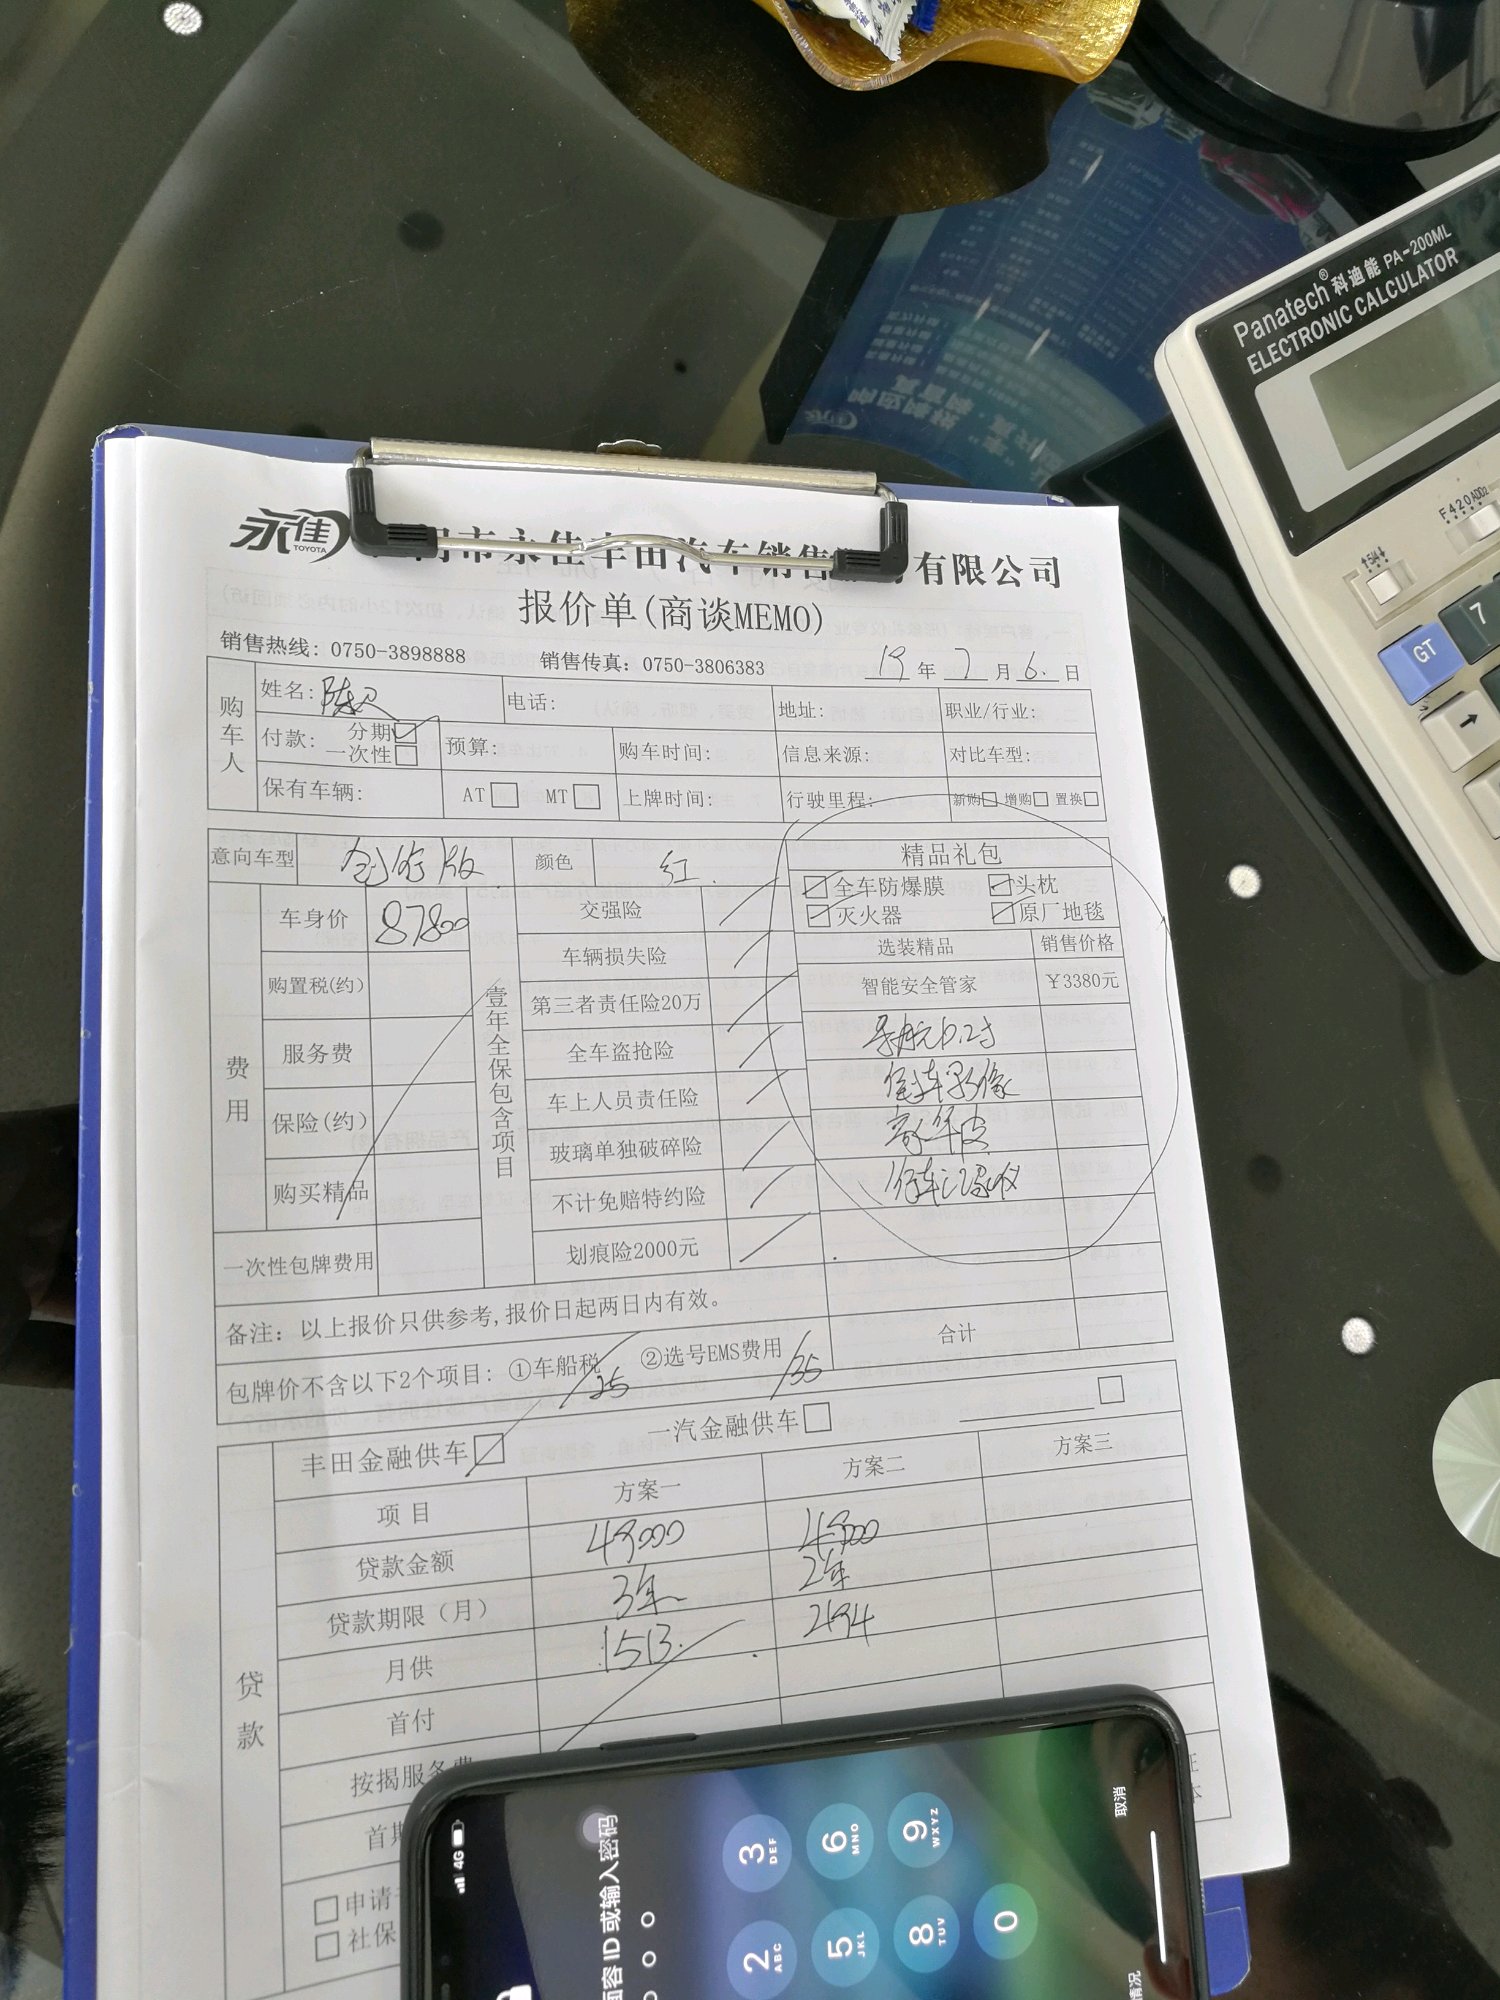 Panatech® 科迪能 PA-200ML
ELECTRONIC CALCULATOR
F420ADD2
5/4
GT
7
永佳
TOYOTA
门市永佳丰田汽车销售服务有限公司
报价单(商谈MEMO)
销售热线: 0750-3898888 销售传真: 0750-3806383 19年7月6.日
购车人
姓名: 电话: 地址: 职业/行业:
付款: 分期☑ 一次性□ 预算: 购车时间: 信息来源: 对比车型:
保有车辆: AT□ MT□ 上牌时间: 行驶里程: 新购□ 增购□ 置换□
意向车型 创行版 颜色 红.
精品礼包
☑全车防爆膜 ☑头枕
☑灭火器 ☑原厂地毯
选装精品 销售价格
智能安全管家 ¥3380元
导航10.2寸
倒车影像
豪华皮
行车记录仪
合计
费用
车身价 87800
购置税(约)
服务费
保险(约)
购买精品
一次性包牌费用
壹年全保包含项目
交强险
车辆损失险
第三者责任险20万
全车盗抢险
车上人员责任险
玻璃单独破碎险
不计免赔特约险
划痕险2000元
备注: 以上报价只供参考,报价日起两日内有效。
包牌价不含以下2个项目: ①车船税 25 ②选号EMS费用 135
贷款
丰田金融供车☑ 一汽金融供车□ □
项目 方案一 方案二 方案三
贷款金额 49000 49000
贷款期限（月） 3年 2年
月供 1513. 2194
首付
按揭服务费
首期
□申请
□社保
证
本
4G
面容 ID 或输入密码
取消
3 DEF
6 MNO
9 WXYZ
2 ABC
5 JKL
8 TUV
0
情况